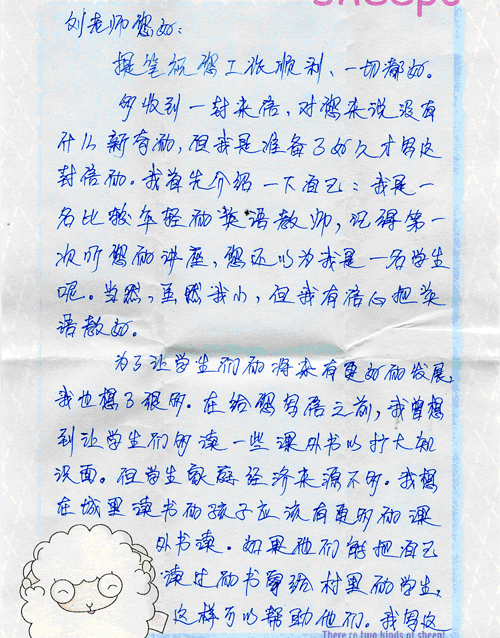 SHEEPS
刘老师您好：
提笔祝您工作顺利、一切都好。
多收到一封来信，对您来说没有
什么新奇的，但我是准备了好久才写这
封信的。我首先介绍一下自己：我是一
名比较年轻的英语教师，记得第一
次听您的讲座，您还以为我是一名学生
呢。当然，虽然我小，但我有信心把英
语教好。
为了让学生们的将来有更好的发展，
我也想了很多。在给您写信之前，我曾想
到让学生们多读一些课外书以扩大知
识面。但学生家庭经济来源不多。我想
在城里读书的孩子应该有更多的课
外书读。如果他们能把自己
读过的书寄给村里的学生，
这样可以帮助他们。我写这
There're two kinds of sheep!